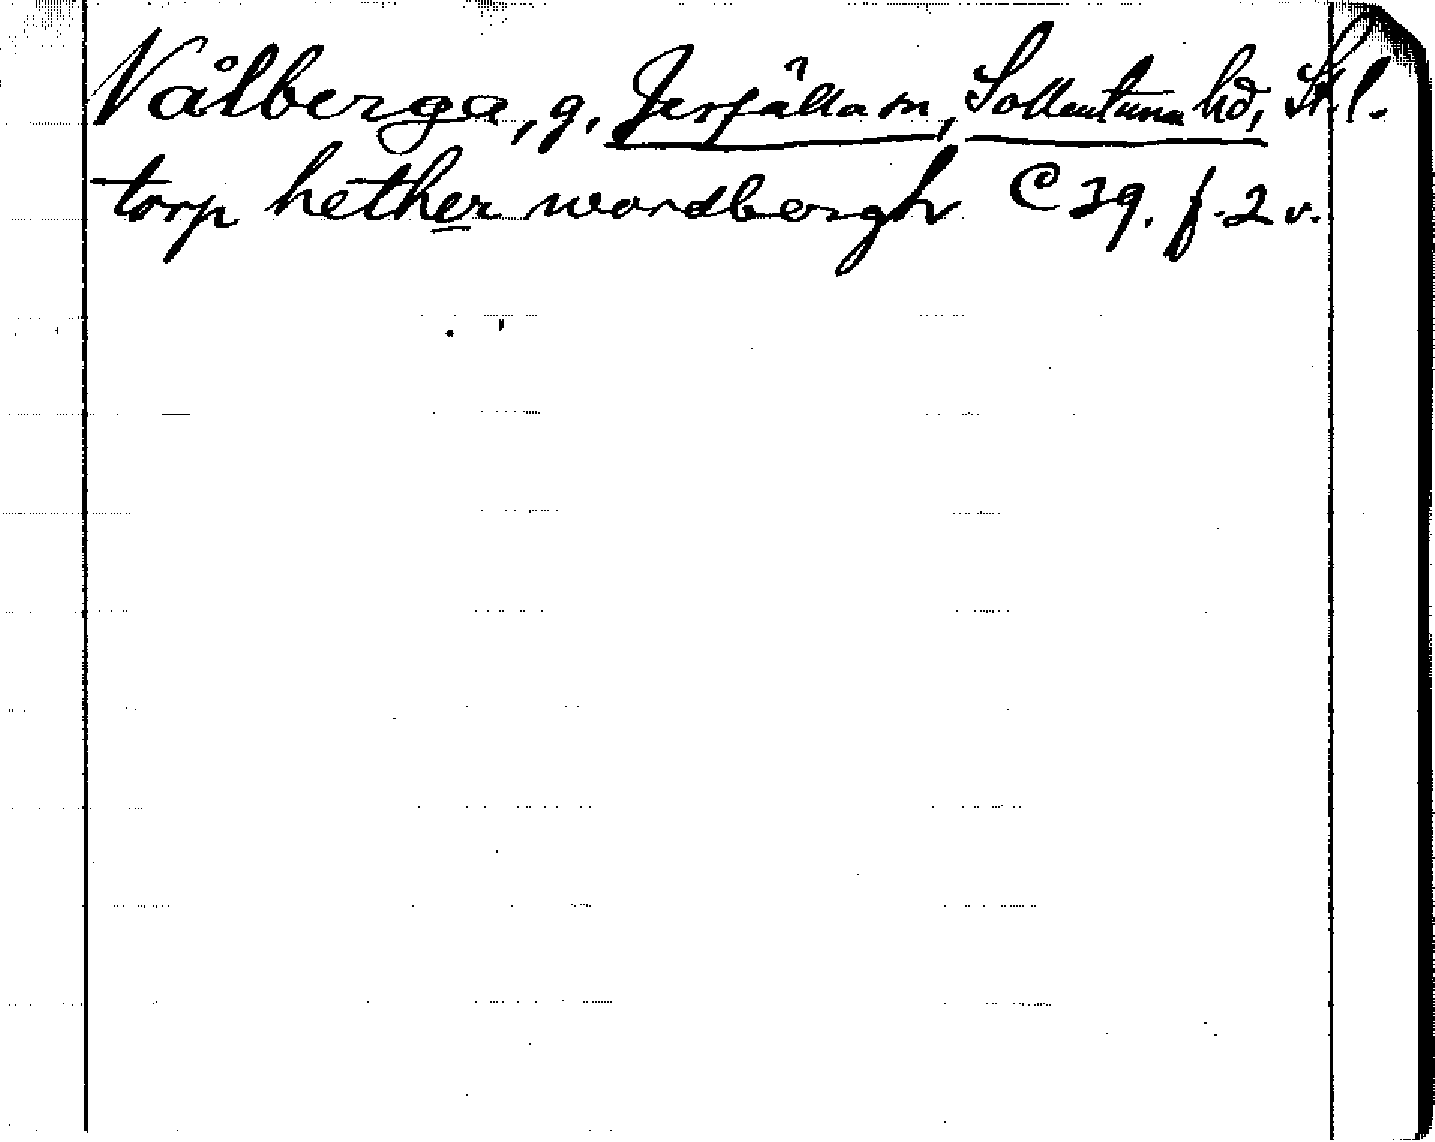 Vålberga, g. Jerfälla sn, Sollentuna hd, Sthl.
torp hether wordbergh C 39. f. 2 v.